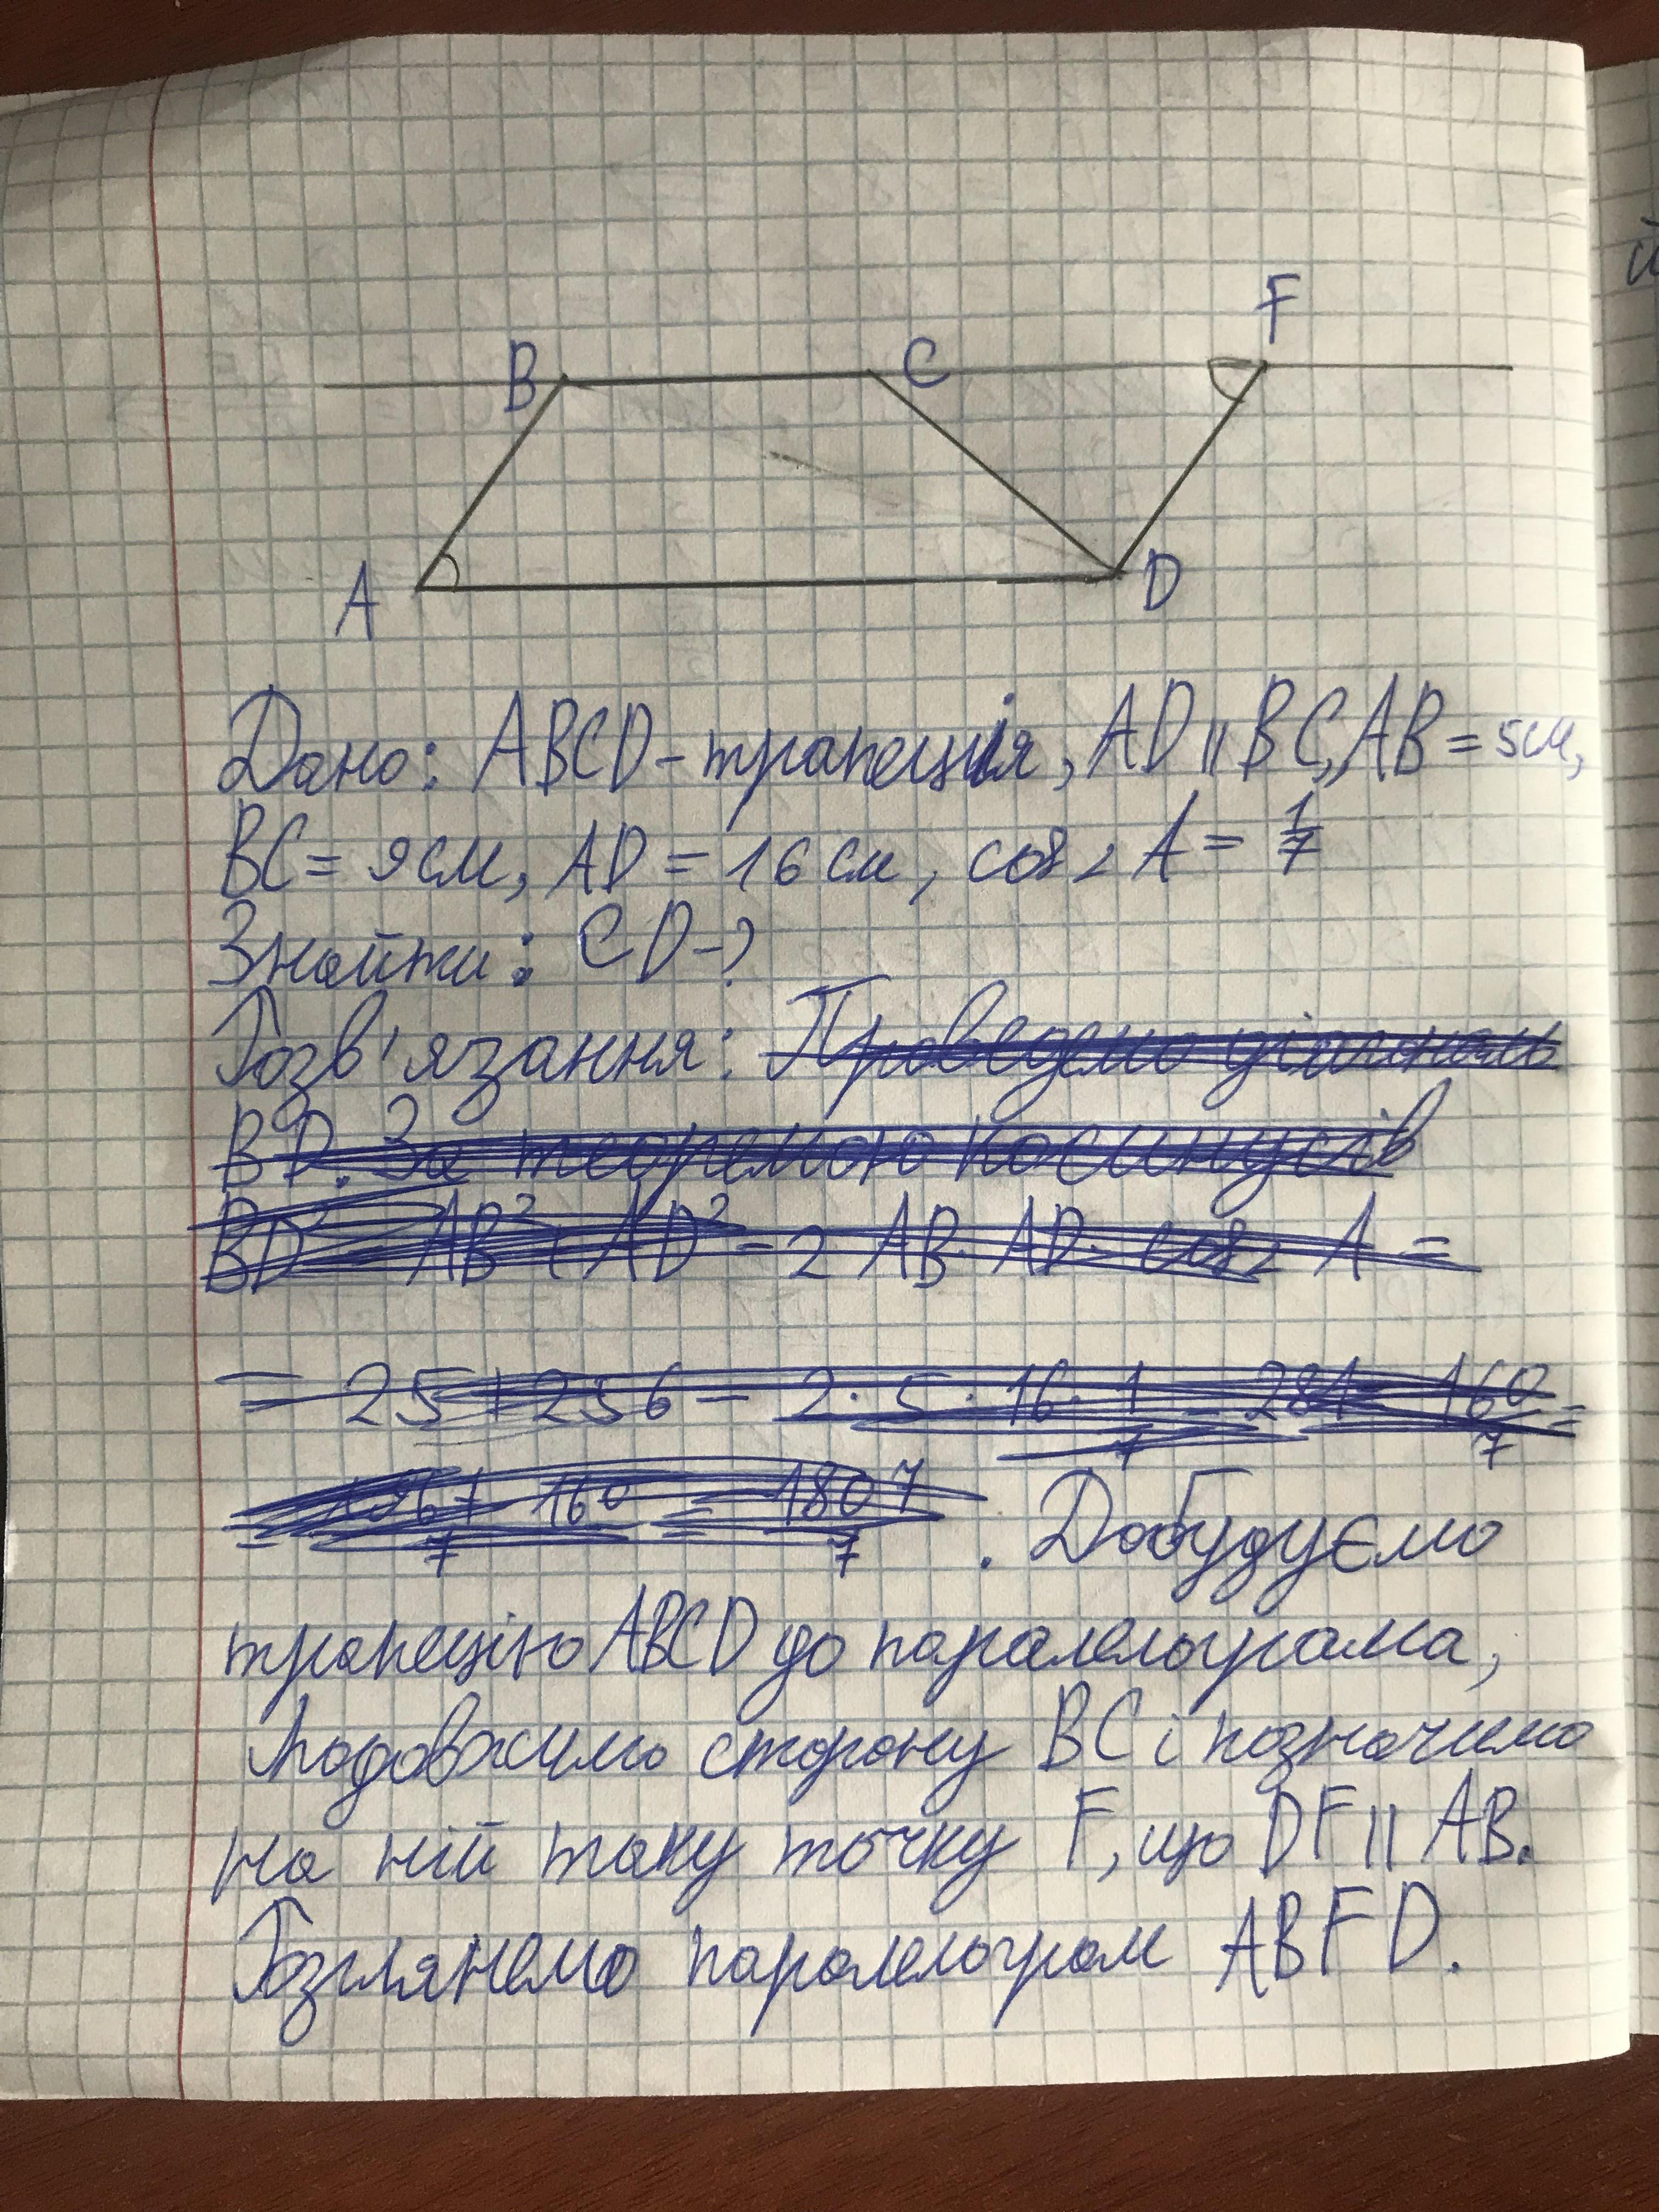 F
B C
A D
Дано: ABCD - трапеція, AD || BC, AB = 5см,
BC = 9см, AD = 16 см, cos ∠ A = 1/7
Знайти: CD - ?
Розв'язання: Проведемо діагональ
BD. За теоремою косинусів
BD² = AB² + AD² - 2 AB · AD · cos ∠ A =
= 25 + 256 - 2 · 5 · 16 · 1/7 = 281 - 160/7 =
= 1967 - 160/7 = 1807/7 . Добудуємо
трапецію ABCD до паралелограма,
подовжимо сторону BC і позначимо
на ній таку точку F, що DF || AB.
Розглянемо паралелограм ABFD.